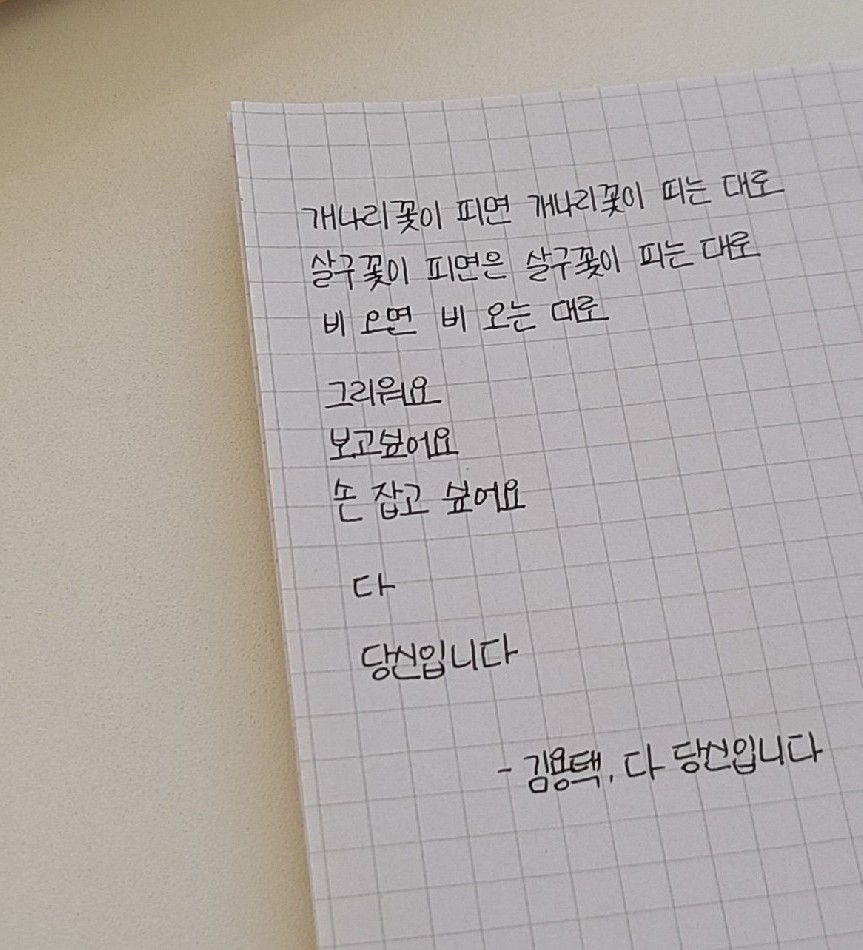 개나리꽃이 피면 개나리꽃이 피는 대로
살구꽃이 피면은 살구꽃이 피는 대로
비 오면 비 오는 대로
그리워요
보고싶어요
손 잡고 싶어요
다
당신입니다
- 김용택, 다 당신입니다